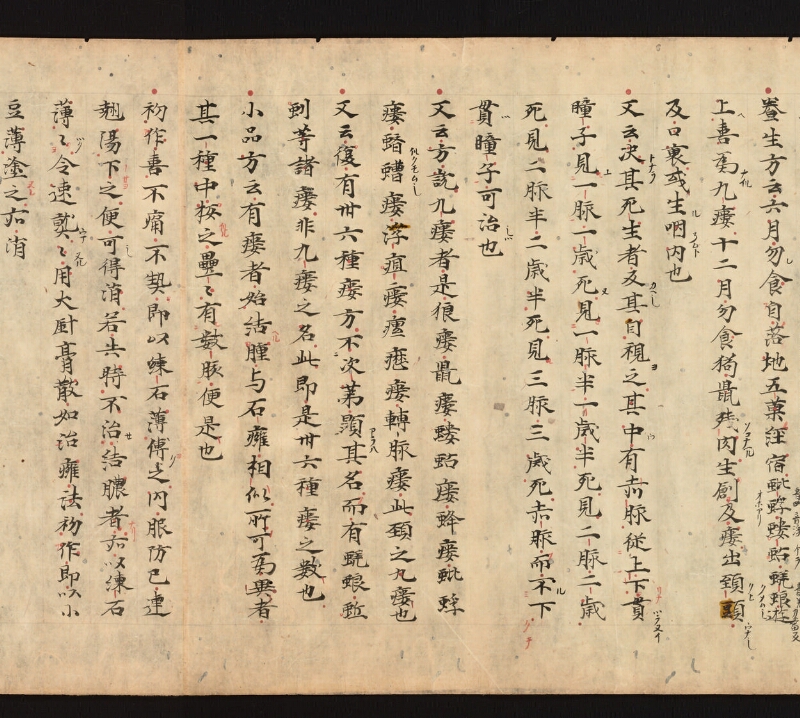 養生方云六月勿食自落地五菓經宿蚍蜉螻蛄蜣蜋遊
上喜為九瘻十二月勿食狗鼠殘肉生創及瘻出頚項
及口裏或生咽内也
又云决其死生者反其目視之其中有赤脉從上下貫
瞳子見一脉一歳死見一脉半一歳半死見二脉二歳
死見二脉半二歳半死見三脉三歳死赤脉而不下
貫瞳子可治也
又云方説九瘻者是狼瘻鼠瘻螻蛄瘻蜂瘻蚍蜉
瘻蠐螬瘻浮疽瘻瘰癧瘻轉脉瘻此頚之九瘻也
又云復有卅六種瘻方不次第顯其名而有蜣蜋蚯
蚓等諸瘻非九瘻之名此即是卅六種瘻之數也
小品方云有瘻者始結腫与石癰相似所可為異者
其一種中按之壘〻有數脉便是也
初作喜不痛不熱即以練石薄傅之内服防已連
翹陽下之便可得消若失時不治結膿者亦以練石
薄〻令速熟〻用火針膏散如治癰法初作即以小
豆薄塗之亦消